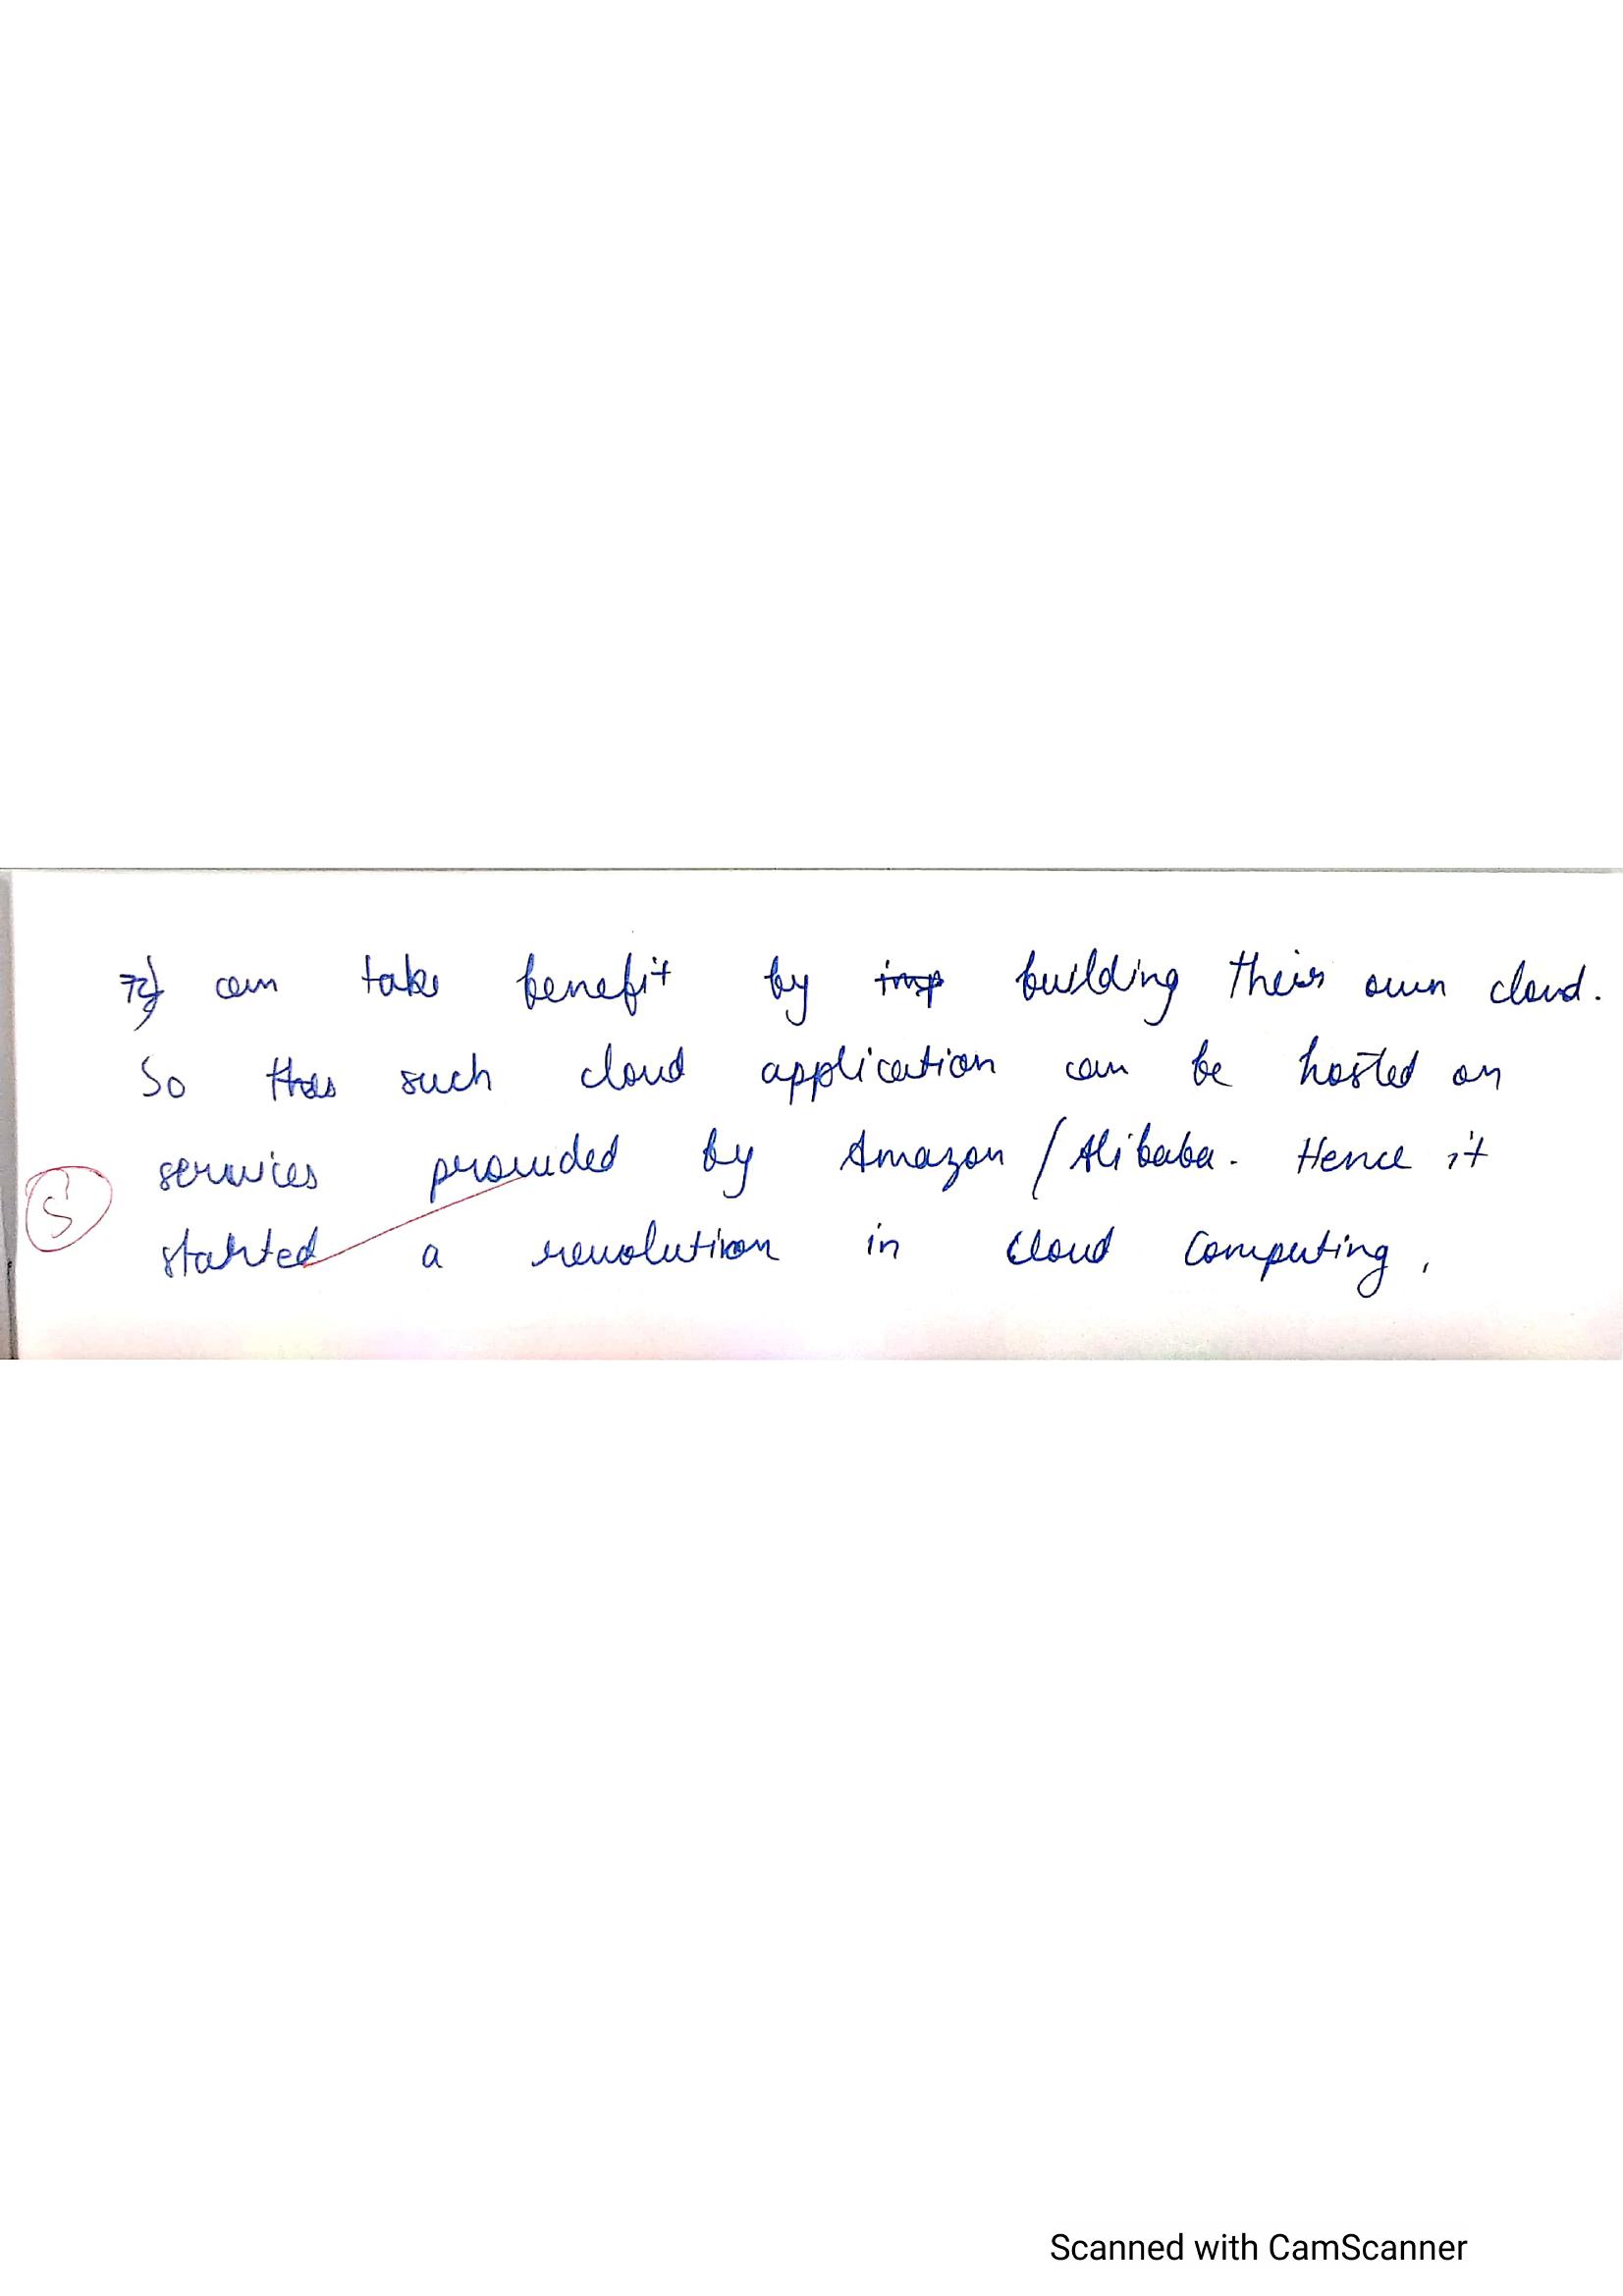 can take benefit by imp building their own cloud.
So thes such cloud application can be hosted on
services provided by Amazon / Alibaba. Hence it
5
started a revolution in cloud computing.
Scanned with CamScanner